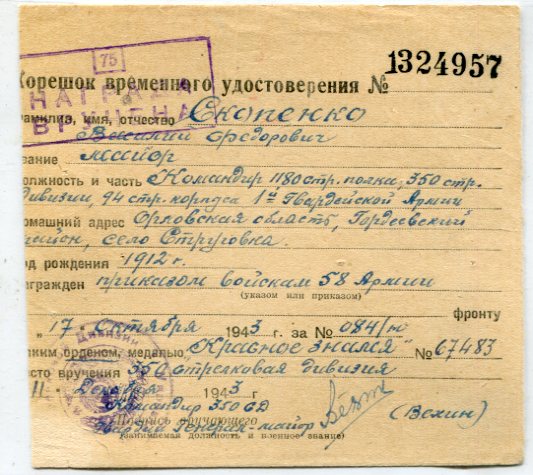 75
НАГРАДА
ВРУЧЕНА
Корешок временного удостоверения № 1324957
фамилия, имя, отчество Скопенко
Василий Федорович
звание майор
должность и часть Командир 1180 стр. полка, 350 стр.
дивизии, 94 стр. корпуса 1й Гвардейской Армии
домашний адрес Орловская область, Гордеевский
район, село Струговка.
год рождения 1912 г.
награжден приказом войскам 58 Армии
(указом или приказом)
фронту
"17" октября 1943 г. за № 084/н
каким орденом, медалью "Красное знамя" № 67483
место вручения 350 стрелковая дивизия
11 Декабря 1943 г
Командир 350 СД
Подпись вручающего
Гвардии Генерал-майор (Вехин)
(занимаемая должность и военное звание)